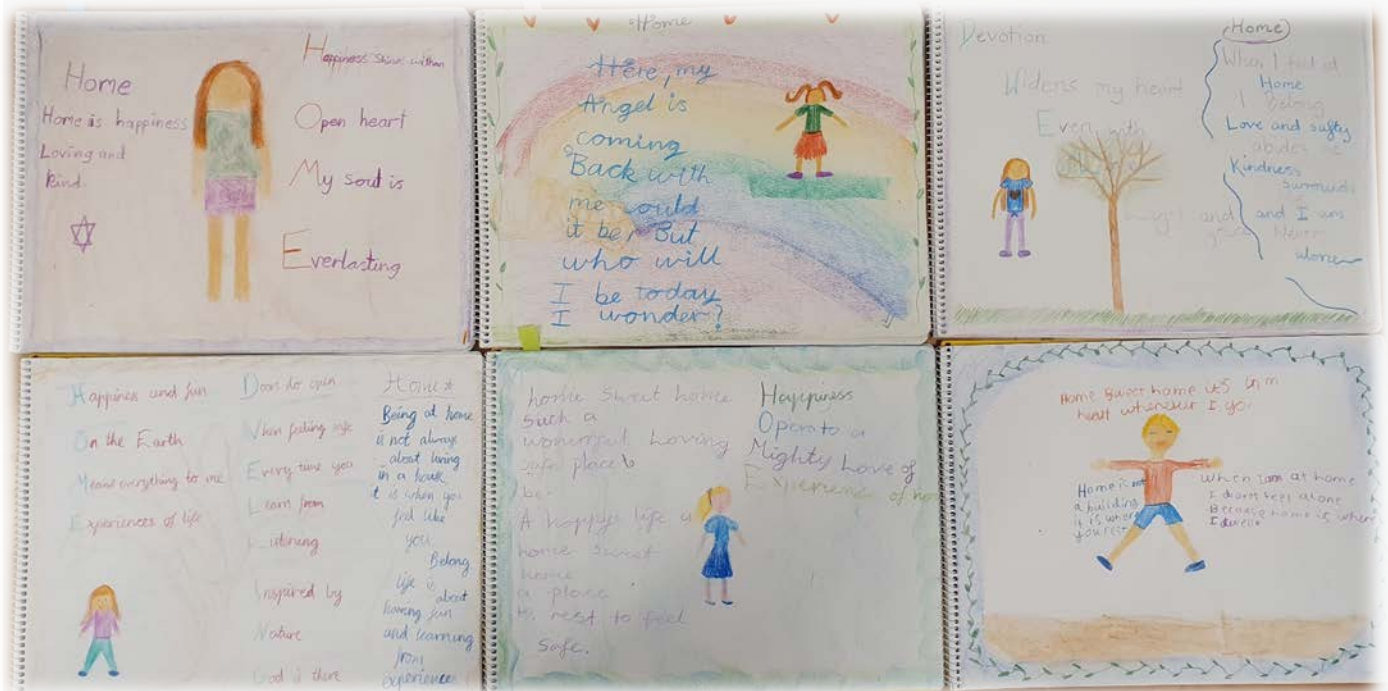 Home
Home is happiness
Loving and
kind.
Happiness shines within
Open heart
My soul is
Everlasting
Home
Here, my
Angel is
coming
Back with
me could
it be, But
who will
I be today
I wonder?
Devotion
Widens my heart
Even with
Home
When I feel at
Home
I Belong
Love and
Kindness
and I am
Never
alone
Happiness and fun
On the Earth
Means everything to me
Experiences of life
Doors do open
When feeling safe
Every time you
Learn from
Listening
Inspired by
Nature
God is there
Home
Being at home
is not always
about living
in a house
it is when you
feel like
you
Belong
life is
about
having fun
and learning
from
experiences
home sweet home
such a
wonerful Loving
safe place
be.
A happy life
home sweet
home
a place
to rest to feel
safe.
Happiness
Open to a
Mighty Love of
Experience of
Home Sweet home it's in m
heart whenever I go
Home is not
a building
it is where
you rest
When I am at home
I don't feel alone
Because home is wher
I dwell